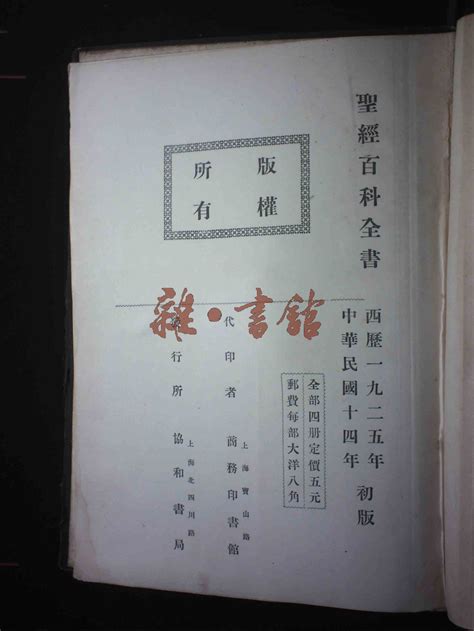 聖經百科全書
西歷一九二五年
中華民國十四年 初版
版權
所有
全部四册定價五元
郵費每部大洋八角
上海寶山路
代印者 商務印書館
上海北四川路
行所 協和書局
雜·書館